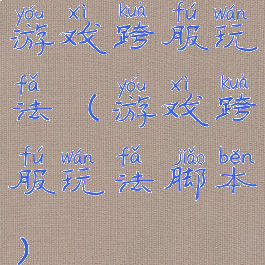 yóu xì kuà fú wán
游戏跨服玩
fǎ yóu xì kuà
法（游戏跨
fú wán fǎ jiǎo běn
服玩法脚本
）